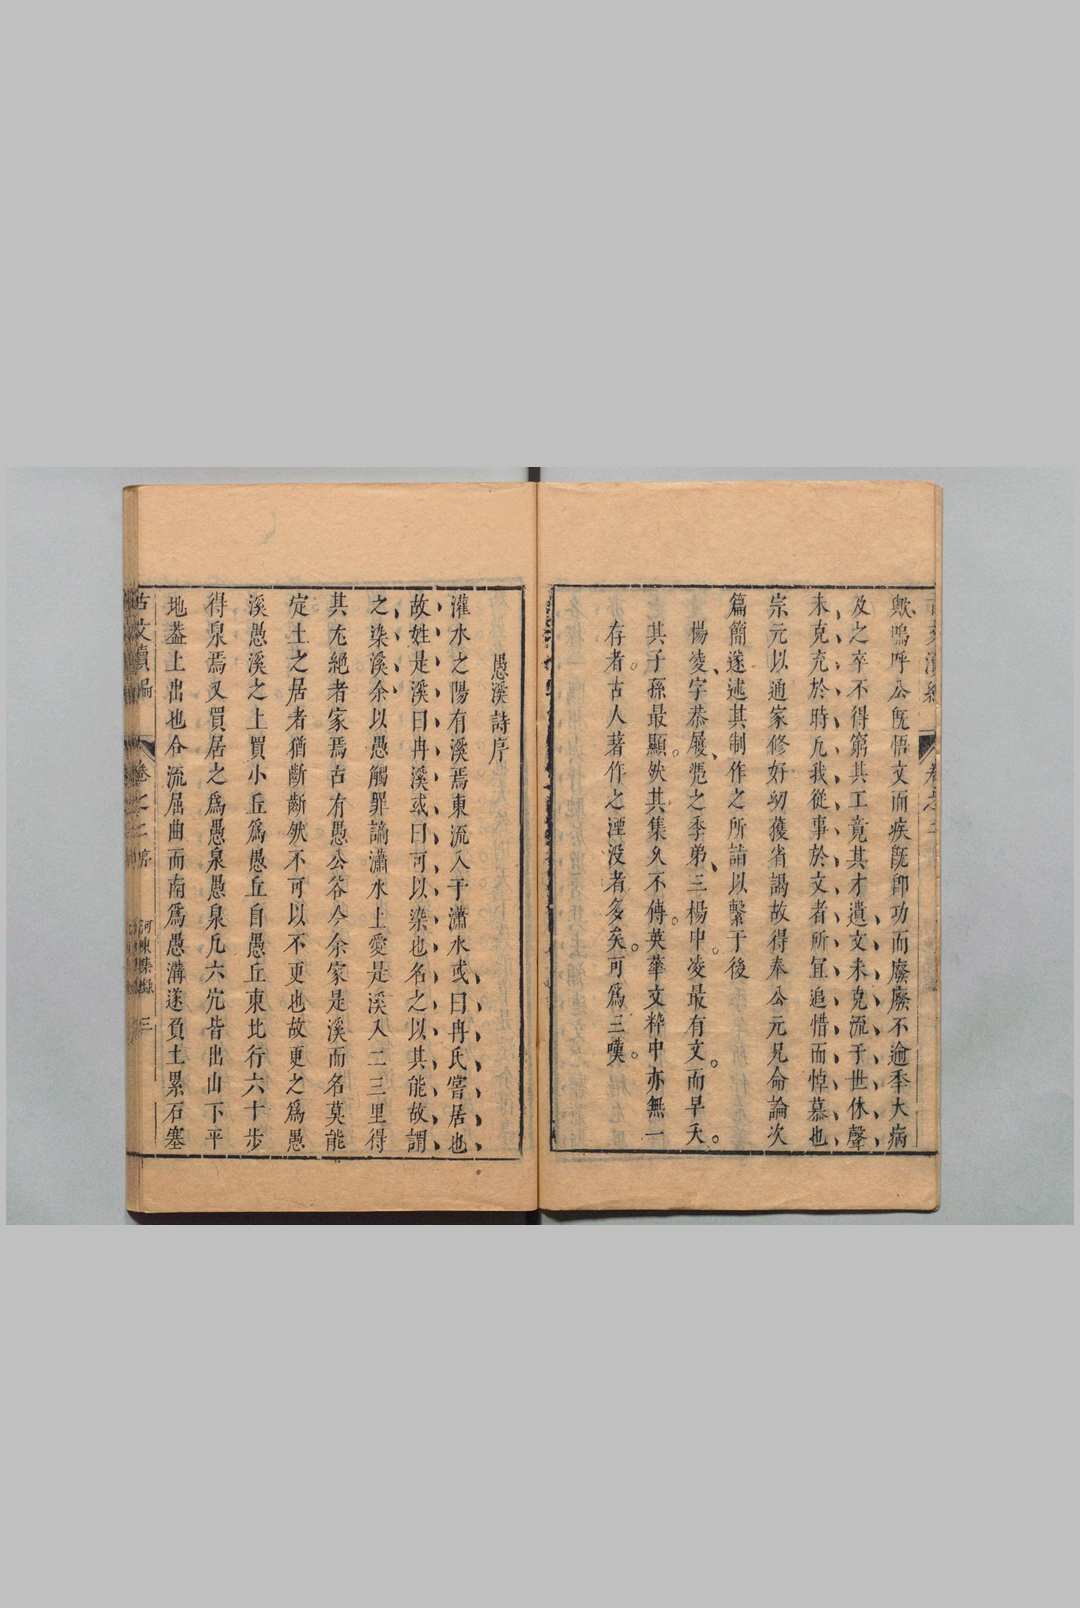 歟嗚呼公既悟文而疾既卽功而廢廢不逾秊大病
及之卒不得窮其工竟其才遺文未克流于世休聲
未克充於時凢我從事於文者所宜追惜而悼慕也
宗元以通家修好㓜獲省謁故得奉公元兄命論次
篇簡遂述其制作之所詣以繫于後
楊凌字恭履凴之季弟三楊中凌最有文而早夭
其子孫最顯然其集久不傳英華文粹中亦無一
存者古人著作之湮没者多矣可爲三嘆
愚溪詩序
灌水之陽有溪焉東流入于瀟水或曰冉氏嘗居也
故姓是溪曰冉溪或曰可以染也名之以其能故謂
之染溪余以愚觸罪謫瀟水上愛是溪入二三里得
其尤絕者家焉古有愚公谷今余家是溪而名莫能
定土之居者猶齗齗然不可以不更也故更之爲愚
溪愚溪之上買小丘爲愚丘自愚丘東北行六十步
得泉焉又買居之爲愚泉愚泉凢六穴皆出山下平
地葢上出也合流屈曲而南爲愚溝遂負土累石塞
古文續編 卷之二 序 三